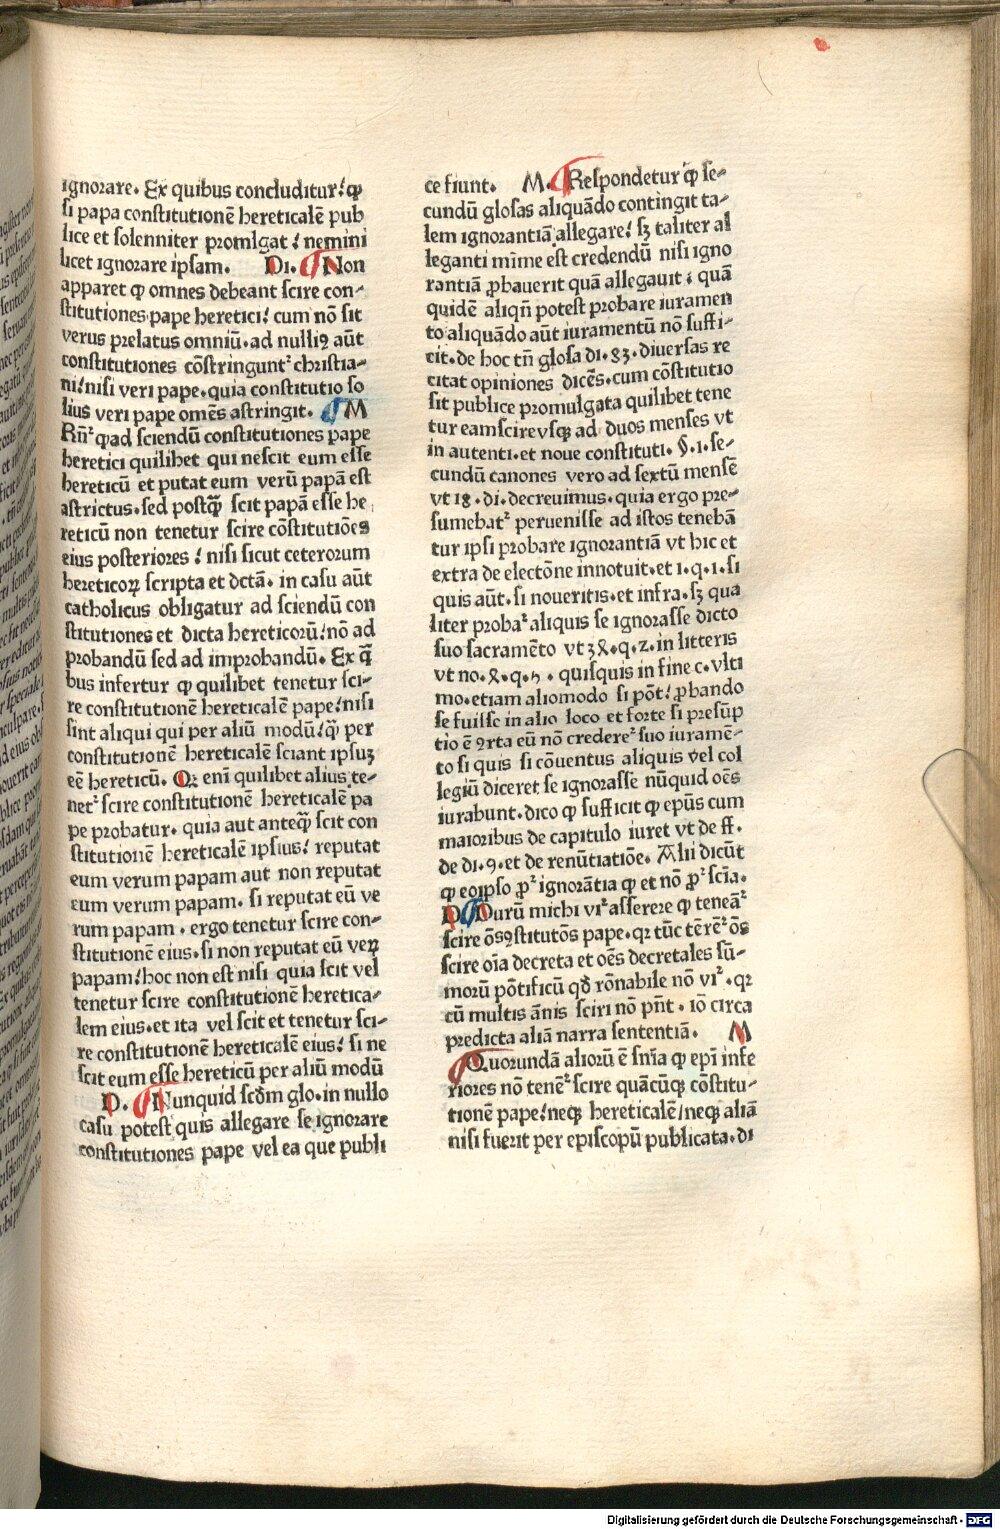 ignorare. Ex quibus concluditur! ꝙ
si papa constitutionē hereticalē pub
lice et solenniter promlgat! nemini
licet ignorare ipsam. Di. ¶ Non
apparet ꝙ omnes debeant scire con-
stitutiones pape heretici! cum nō sit
verus prelatus omniū. ad nulliꝰ aūt
constitutiones cōstringunt᷑ christia-
ni! nisi veri pape. quia constitutio so
lius veri pape omēs astringit. ¶ M
Rn̄᷑ ꝙ ad sciendū constitutiones pape
heretici quilibet qui nescit eum esse
hereticū et putat eum verū papā est
astrictus. sed postꝙ̄ scit papā esse he
reticū non tenetur scire cōstitutiōes
eius posteriores! nisi sicut ceterorum
hereticoꝝ scripta et dctā. in casu aūt
catholicus obligatur ad sciendū con
stitutiones et dicta hereticorū! nō ad
probandū sed ad improbandū. Ex q̄
bus infertur ꝙ quilibet tenetur sci-
re constitutionē hereticalē pape! nisi
sint aliqui qui per aliū modū! q̄ꝫ per
constitutionē hereticalē sciant ipsuꝫ
eē hereticū. Qꝛ eni quilibet alius te-
net᷑ scire constitutionē hereticalē pa
pe probatur. quia aut anteꝙ̄ scit con
stitutionē hereticalē ipsius! reputat
eum verum papam aut non reputat
eum verum papam. si reputat eū ve
rum papam. ergo tenetur scire con-
stitutionē eius. si non reputat eū veꝝ
papam! hoc non est nisi quia scit vel
tenetur scire constitutionē heretica-
lem eius. et ita vel scit et tenetur sci-
re constitutionē hereticalē eius! si ne
scit eum esse hereticū per aliū modū
D. ¶ Nunquid scd̄m glo. in nullo
casu potest quis allegare se ignorare
constitutiones pape vel ea que publi
ce fiunt. M. ¶ Respondetur ꝙ̄ se-
cundū glosas aliquādo contingit ta-
lem ignorantiā allegare! sꝫ taliter al
leganti mīme est credendū nisi igno
rantiā ꝓbauerit quā allegauit: quā
quidē aliqn̄ potest probare iuramen
to aliquādo aūt iuramentū nō suffi-
cit. de hoc tn̄ glosa di. 83. diuersas re
citat opiniones dicēs. cum cōstitutio
sit publice promulgata quilibet tene
tur eam scire vsqꝫ ad duos menses vt
in autenti. et noue constituti. §. 1. se-
cundū canones vero ad sextū mensē
vt 18. di. decreuimus. quia ergo pre-
sumebat᷑ peruenisse ad istos tenebā
tur ipsi probare ignorantiā vt hic et
extra de electōne innotuit. et 1. q. 1. si
quis aūt. si noueritis. et infra. sꝫ qua
liter proba᷑ aliquis se ignorasse dicto
suo sacramēto vt 38. q. 2. in litteris
vt no. 8. q. 5. quisquis in fine c. vlti
mo. etiam aliomodo si pōt! ꝓbando
se fuisse in alio loco et forte si presūp
tio ē ꝯrta eū nō credere᷑ suo iuramē-
to si quis si cōuentus aliquis vel col
legiū diceret se ignorasse nūquid oēs
iurabunt. dico ꝙ sufficit ꝙ epūs cum
maioribus de capitulo iuret vt de ff.
de di. 9. et de renūtiatiōe. Alii dicūt
ꝙ eoipso ꝓ᷑ ignorātia ꝙ et nō ꝓ᷑ scīa.
D ¶ Durū michi vi᷑ asserere ꝙ teneā᷑
scire ōs ꝯstitutōs pape. qꝛ tūc tērē᷑ ōs
scire oīa decreta et oēs decretales sū-
morū pōtificū qd̄ rōnabile nō vi᷑. qꝛ
cū multis ānis sciri nō pn̄t. iō circa
predicta aliā narra sententiā. M
¶ Quorundā aliorū ē sn̄ia ꝙ epī infe
riores nō tenē᷑ scire quācūqꝫ cōstitu-
tionē pape! neqꝫ hereticalē / neqꝫ aliā
nisi fuerit per episcopū publicata. di
Digitalisierung gefördert durch die Deutsche Forschungsgemeinschaft - DFG